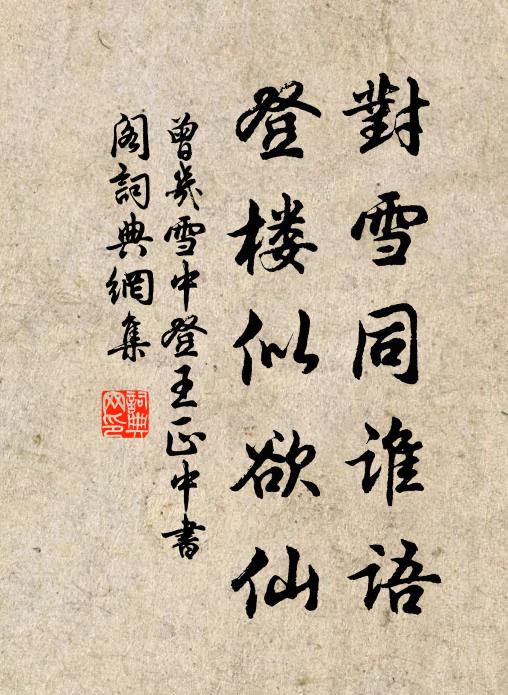 對雪同誰語
登楼似欲仙
曾幾雪中登王正中書
阁詞典網集
詞典網印